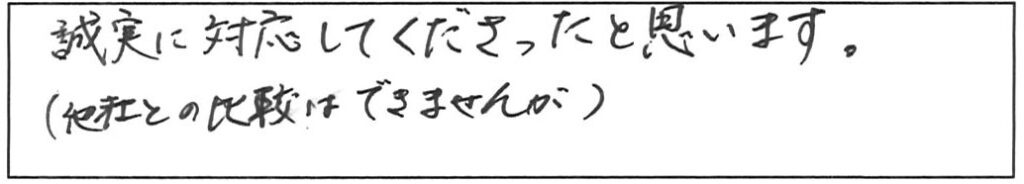 誠実に対応してくださったと思います。
(他社との比較はできませんが)